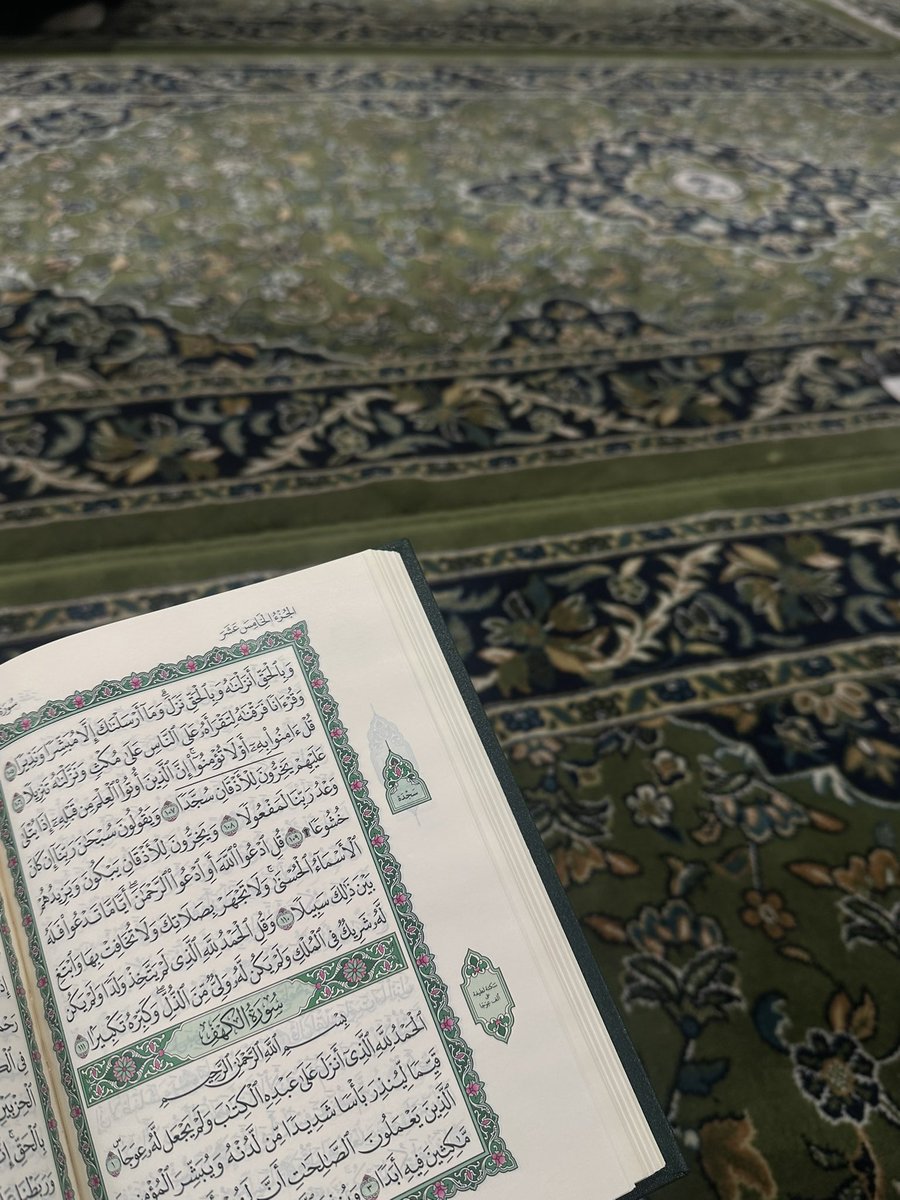 الجزء الخامس عشر
وَبِالْحَقِّ أَنزَلْنَٰهُ وَبِالْحَقِّ نَزَلَ وَمَا أَرْسَلْنَٰكَ إِلَّا مُبَشِّرًا وَنَذِيرًا ١٠٥
وَقُرْءَانًا فَرَقْنَٰهُ لِتَقْرَأَهُ عَلَى النَّاسِ عَلَىٰ مُكْثٍ وَنَزَّلْنَٰهُ تَنزِيلًا ١٠٦
قُلْ ءَامِنُوا بِهِ أَوْ لَا تُؤْمِنُوا إِنَّ الَّذِينَ أُوتُوا الْعِلْمَ مِن قَبْلِهِ إِذَا يُتْلَىٰ
عَلَيْهِمْ يَخِرُّونَ لِلْأَذْقَانِ سُجَّدًا ١٠٧ وَيَقُولُونَ سُبْحَٰنَ رَبِّنَا إِن كَانَ
وَعْدُ رَبِّنَا لَمَفْعُولًا ١٠٨ وَيَخِرُّونَ لِلْأَذْقَانِ يَبْكُونَ وَيَزِيدُهُمْ
خُشُوعًا ۩ ١٠٩ قُلِ ادْعُوا اللَّهَ أَوِ ادْعُوا الرَّحْمَٰنَ أَيًّا مَّا تَدْعُوا فَلَهُ
الْأَسْمَاءُ الْحُسْنَىٰ وَلَا تَجْهَرْ بِصَلَاتِكَ وَلَا تُخَافِتْ بِهَا وَابْتَغِ
بَيْنَ ذَٰلِكَ سَبِيلًا ١١٠ وَقُلِ الْحَمْدُ لِلَّهِ الَّذِي لَمْ يَتَّخِذْ وَلَدًا وَلَمْ يَكُن
لَّهُ شَرِيكٌ فِي الْمُلْكِ وَلَمْ يَكُن لَّهُ وَلِيٌّ مِّنَ الذُّلِّ وَكَبِّرْهُ تَكْبِيرًا ١١١
سجدة
سُورَةُ الْكَهْفِ
بِسْمِ اللَّهِ الرَّحْمَٰنِ الرَّحِيمِ
الْحَمْدُ لِلَّهِ الَّذِي أَنزَلَ عَلَىٰ عَبْدِهِ الْكِتَٰبَ وَلَمْ يَجْعَل لَّهُ عِوَجًا ١
قَيِّمًا لِّيُنذِرَ بَأْسًا شَدِيدًا مِّن لَّدُنْهُ وَيُبَشِّرَ الْمُؤْمِنِينَ
الَّذِينَ يَعْمَلُونَ الصَّٰلِحَٰتِ أَنَّ لَهُمْ
مَّٰكِثِينَ فِيهِ أَبَدًا ٣ وَيُنذِرَ
سكتة لطيفة
على
ألف عوجا